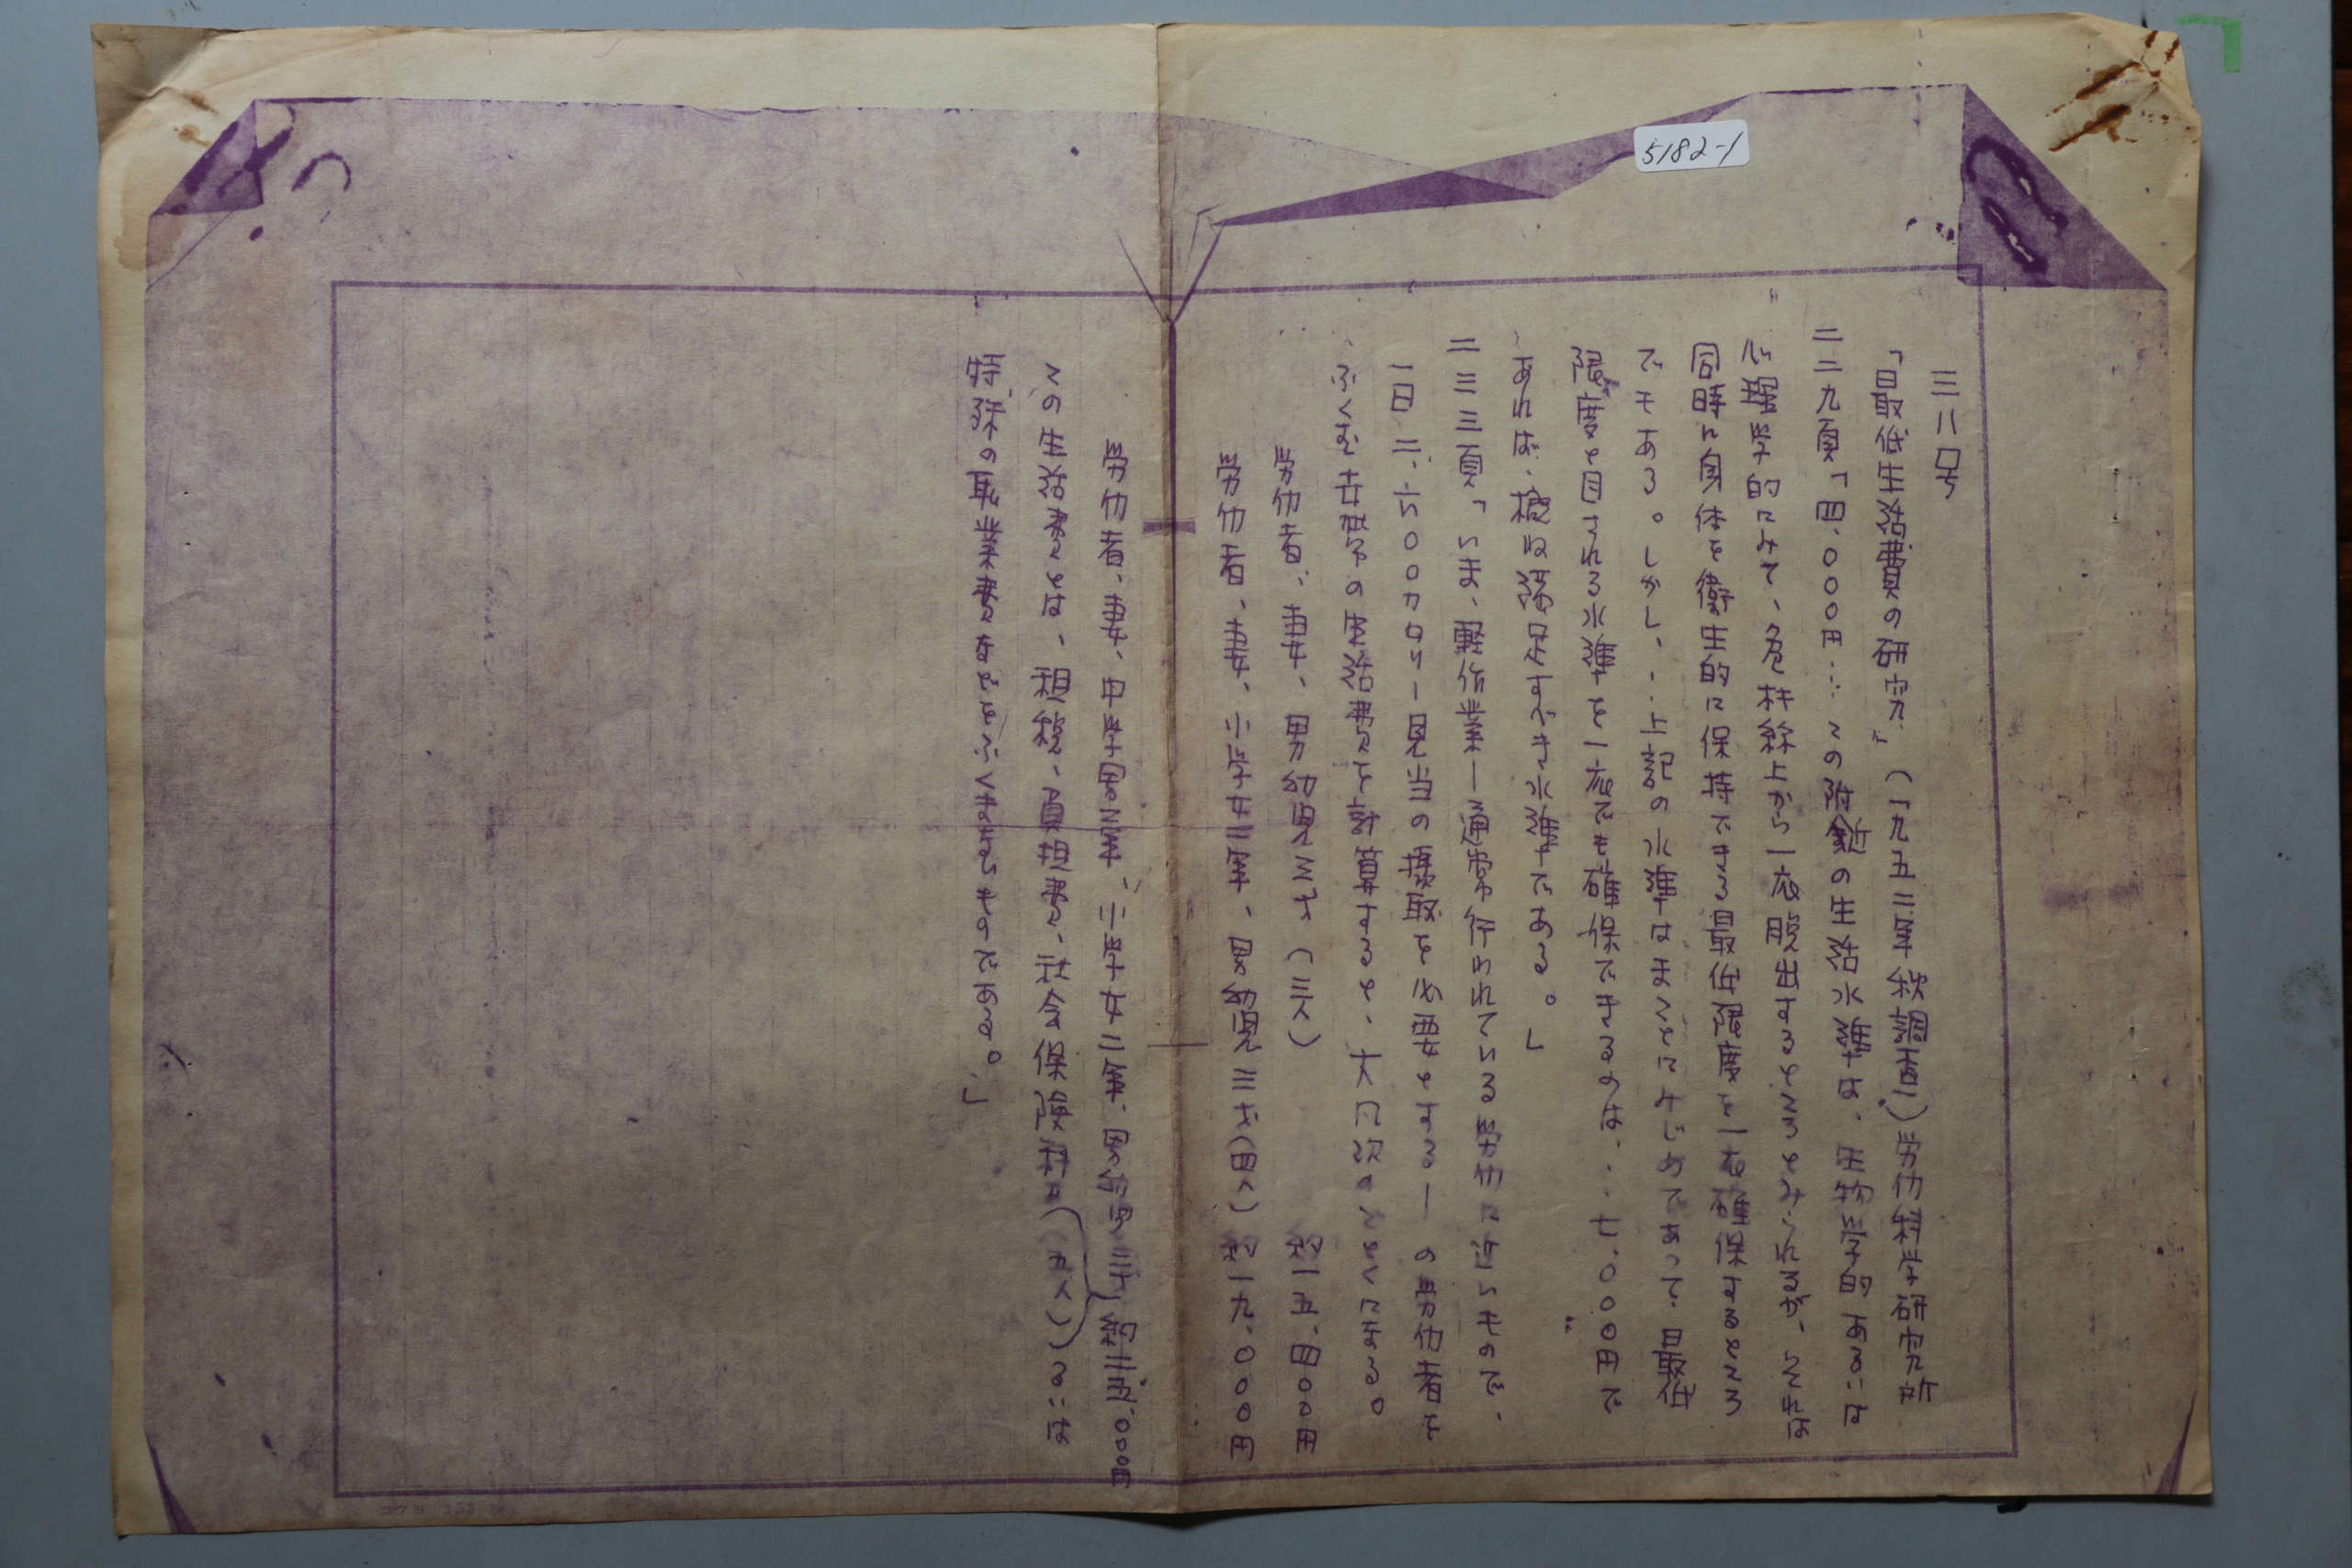 5182-1
三八号
「最低生活費の研究」(一九五二年秋調査)労仂科学研究所
二二九頁「四、〇〇〇円…この附近の生活水準は、生物学的あるいは
心理学的にみて、危林線上から一応脱出するところとみられるが、それは
同時に身体を衛生的に保持できる最低限度を一応確保するところ
でもある。しかし、…上記の水準はまことにみじめであって、最低
限度と目される水準を一応でも確保できるのは、…七、〇〇〇円で
あれば、概ね満足すべき水準である。」
二三三頁「いま、軽作業ー通常行われている労仂に近いもので、
一日二、六〇〇カロリー見当の摂取を必要とするーの労仂者を
ふくむ世帯の生活費を計算すると、大凡次のごとくになる。
労仂者、妻、男幼児三才(三人) 約一五、四〇〇円
労仂者、妻、小学女二年、男幼児三才(四人) 約一九、〇〇〇円
労仂者、妻、中学男二年、小学女二年、男幼児三才 約二五、〇〇〇円
(五人)
この生活費とは、租税、負担費、社会保険料あるいは
特殊の恥業費などをふくまないものである。」